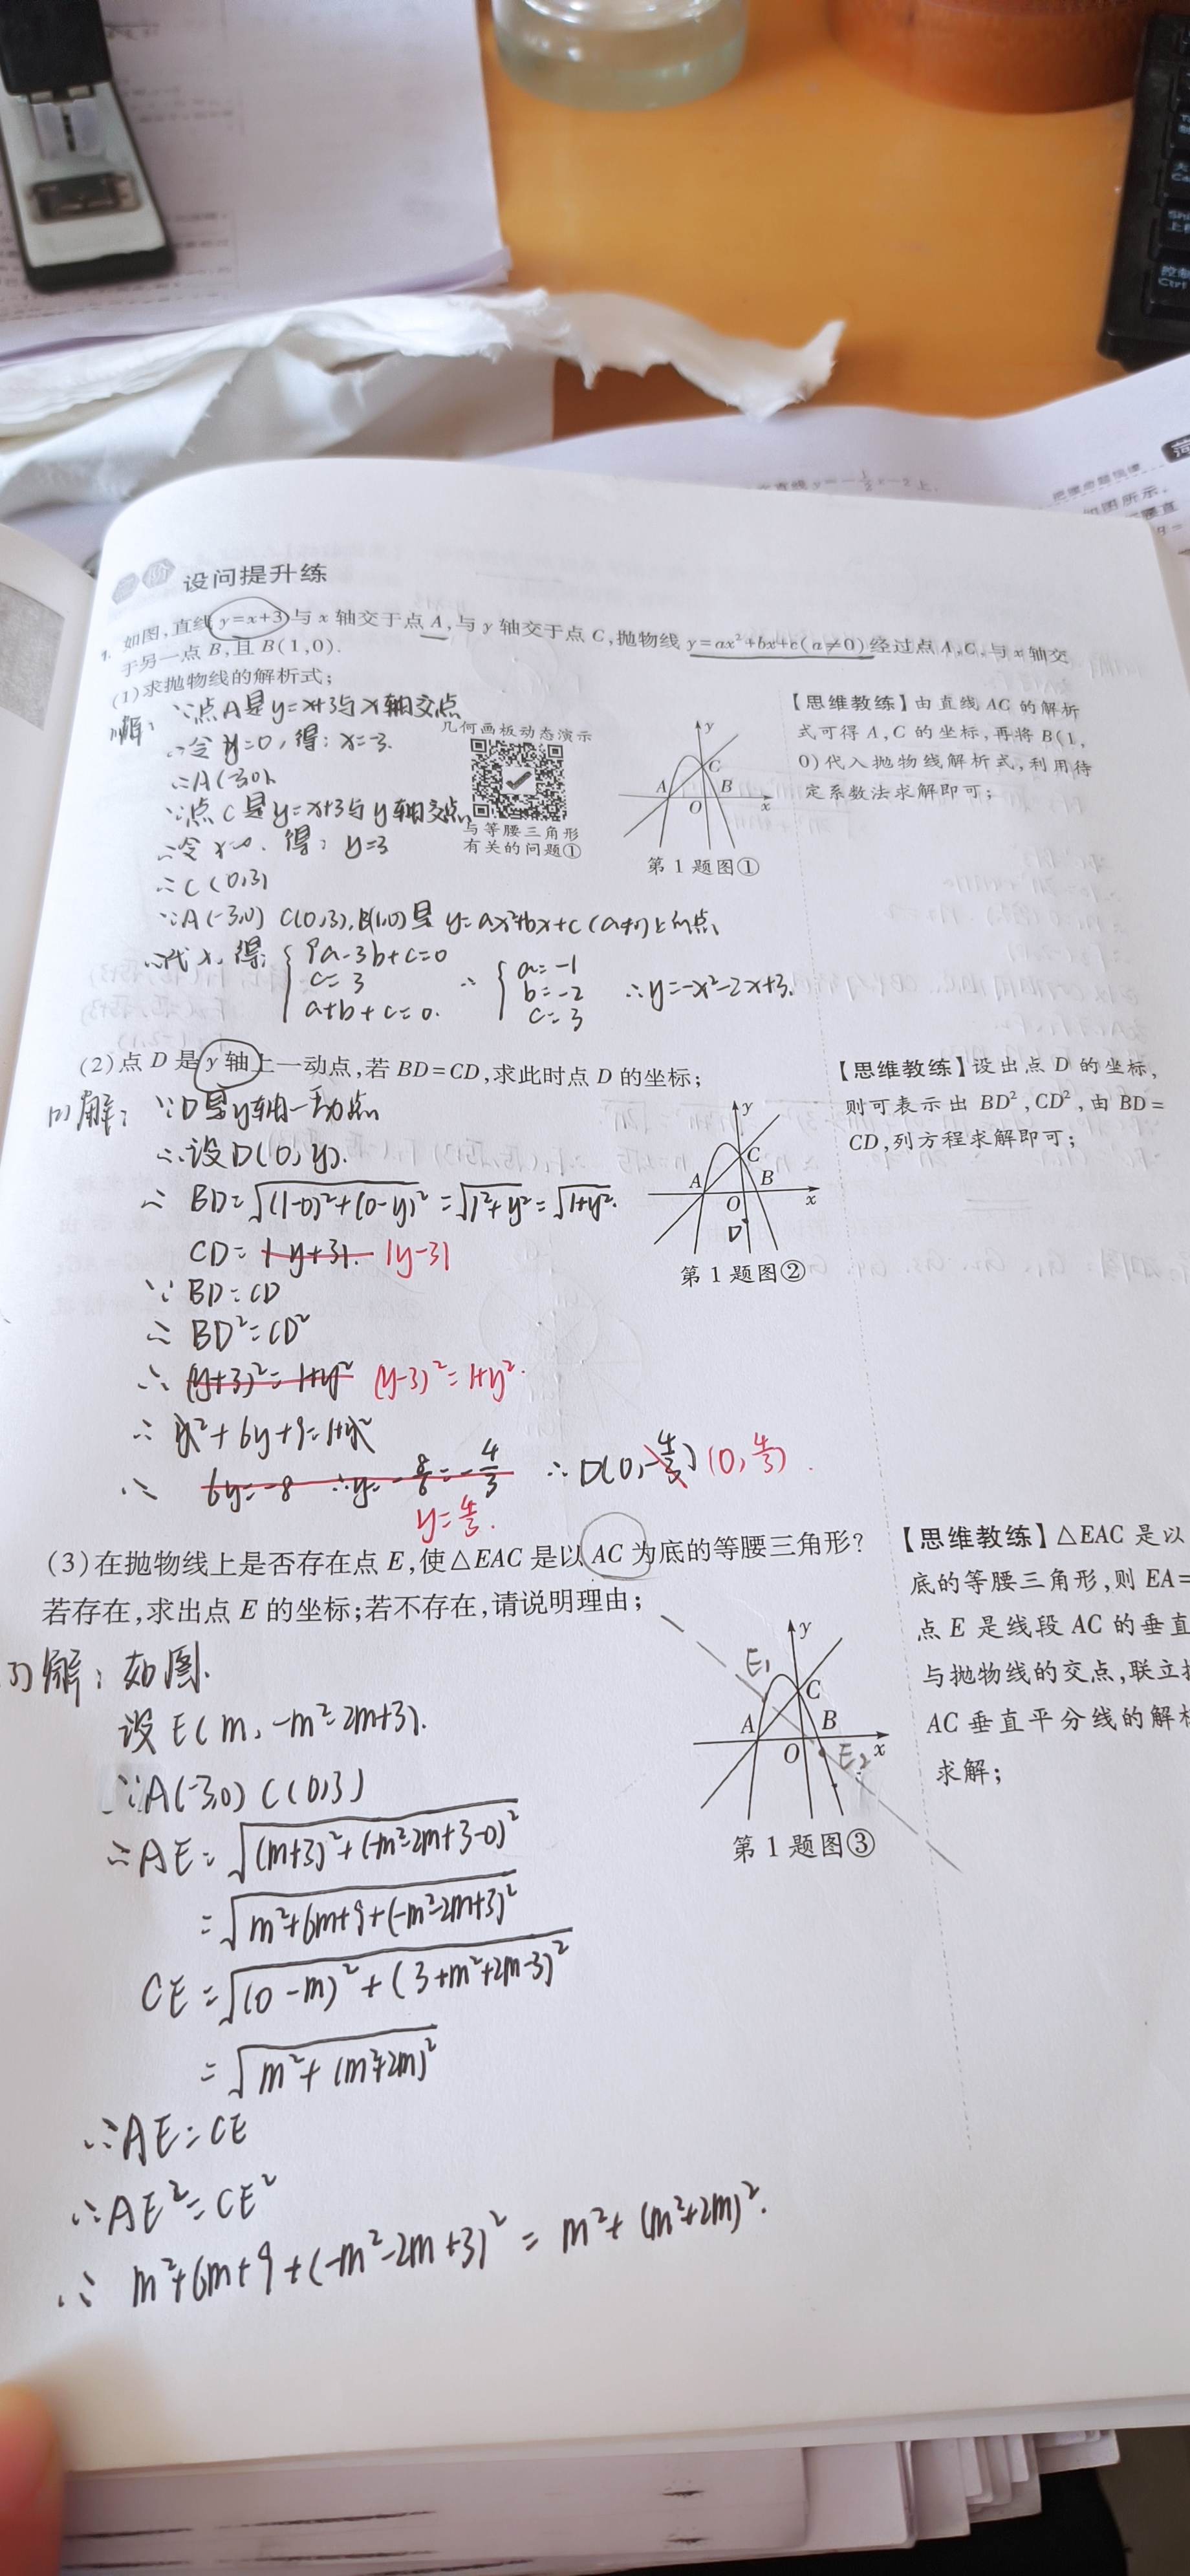 设问提升练
1. 如图,直线 y=x+3 与 x 轴交于点 A,与 y 轴交于点 C,抛物线 y=ax²+bx+c(a≠0)经过点 A,C,与 x 轴交
于另一点 B,且 B(1,0).
(1)求抛物线的解析式;
解: ∵点A是y=x+3与x轴交点
∴令y=0,得:x=-3.
∴A(-3,0)
∵点C是y=x+3与y轴交点
∴令x=0,得:y=3
∴C(0,3)
∵A(-3,0) C(0,3),B(1,0)是 y=ax²+bx+c(a≠0)上的点
∴代入,得:
9a-3b+c=0
c=3
a+b+c=0.
∴
a=-1
b=-2
c=3
∴y=-x²-2x+3.
几何画板动态演示
与等腰三角形
有关的问题①
y
C
A
B
O
x
第1题图①
【思维教练】由直线 AC 的解析
式可得 A,C 的坐标,再将 B(1,
0)代入抛物线解析式,利用待
定系数法求解即可;
(2)点 D 是 y 轴上一动点,若 BD=CD,求此时点 D 的坐标;
解: ∵D是y轴一动点
∴设D(0,y).
∴ BD=√((1-0)²+(0-y)²)=√(1²+y²)=√(1+y²).
CD=|y+3|. |y-3|
∵ BD=CD
∴ BD²=CD²
∴ (y+3)²=1+y² (y-3)²=1+y².
∴ y²+6y+9=1+y²
∴ 6y=-8 ∴y=-8/6=-4/3 ∴D(0,-4/3) (0,4/3).
y=4/3.
y
C
A
B
O
x
D
第1题图②
【思维教练】设出点 D 的坐标,
则可表示出 BD²,CD²,由 BD=
CD,列方程求解即可;
(3)在抛物线上是否存在点 E,使△EAC 是以 AC 为底的等腰三角形?
若存在,求出点 E 的坐标;若不存在,请说明理由;
解:如图.
设E(m,-m²-2m+3).
∵A(-3,0) C(0,3)
∴AE=√((m+3)²+(-m²-2m+3-0)²)
=√(m²+6m+9+(-m²-2m+3)²)
CE=√((0-m)²+(3+m²+2m-3)²)
=√(m²+(m²+2m)²)
∵AE=CE
∴AE²=CE²
∴ m²+6m+9+(-m²-2m+3)²=m²+(m²+2m)².
y
E₁
C
A
B
O
E₂
x
第1题图③
【思维教练】△EAC 是以
底的等腰三角形,则 EA=
点 E 是线段 AC 的垂直
与抛物线的交点,联立
AC 垂直平分线的解
求解;